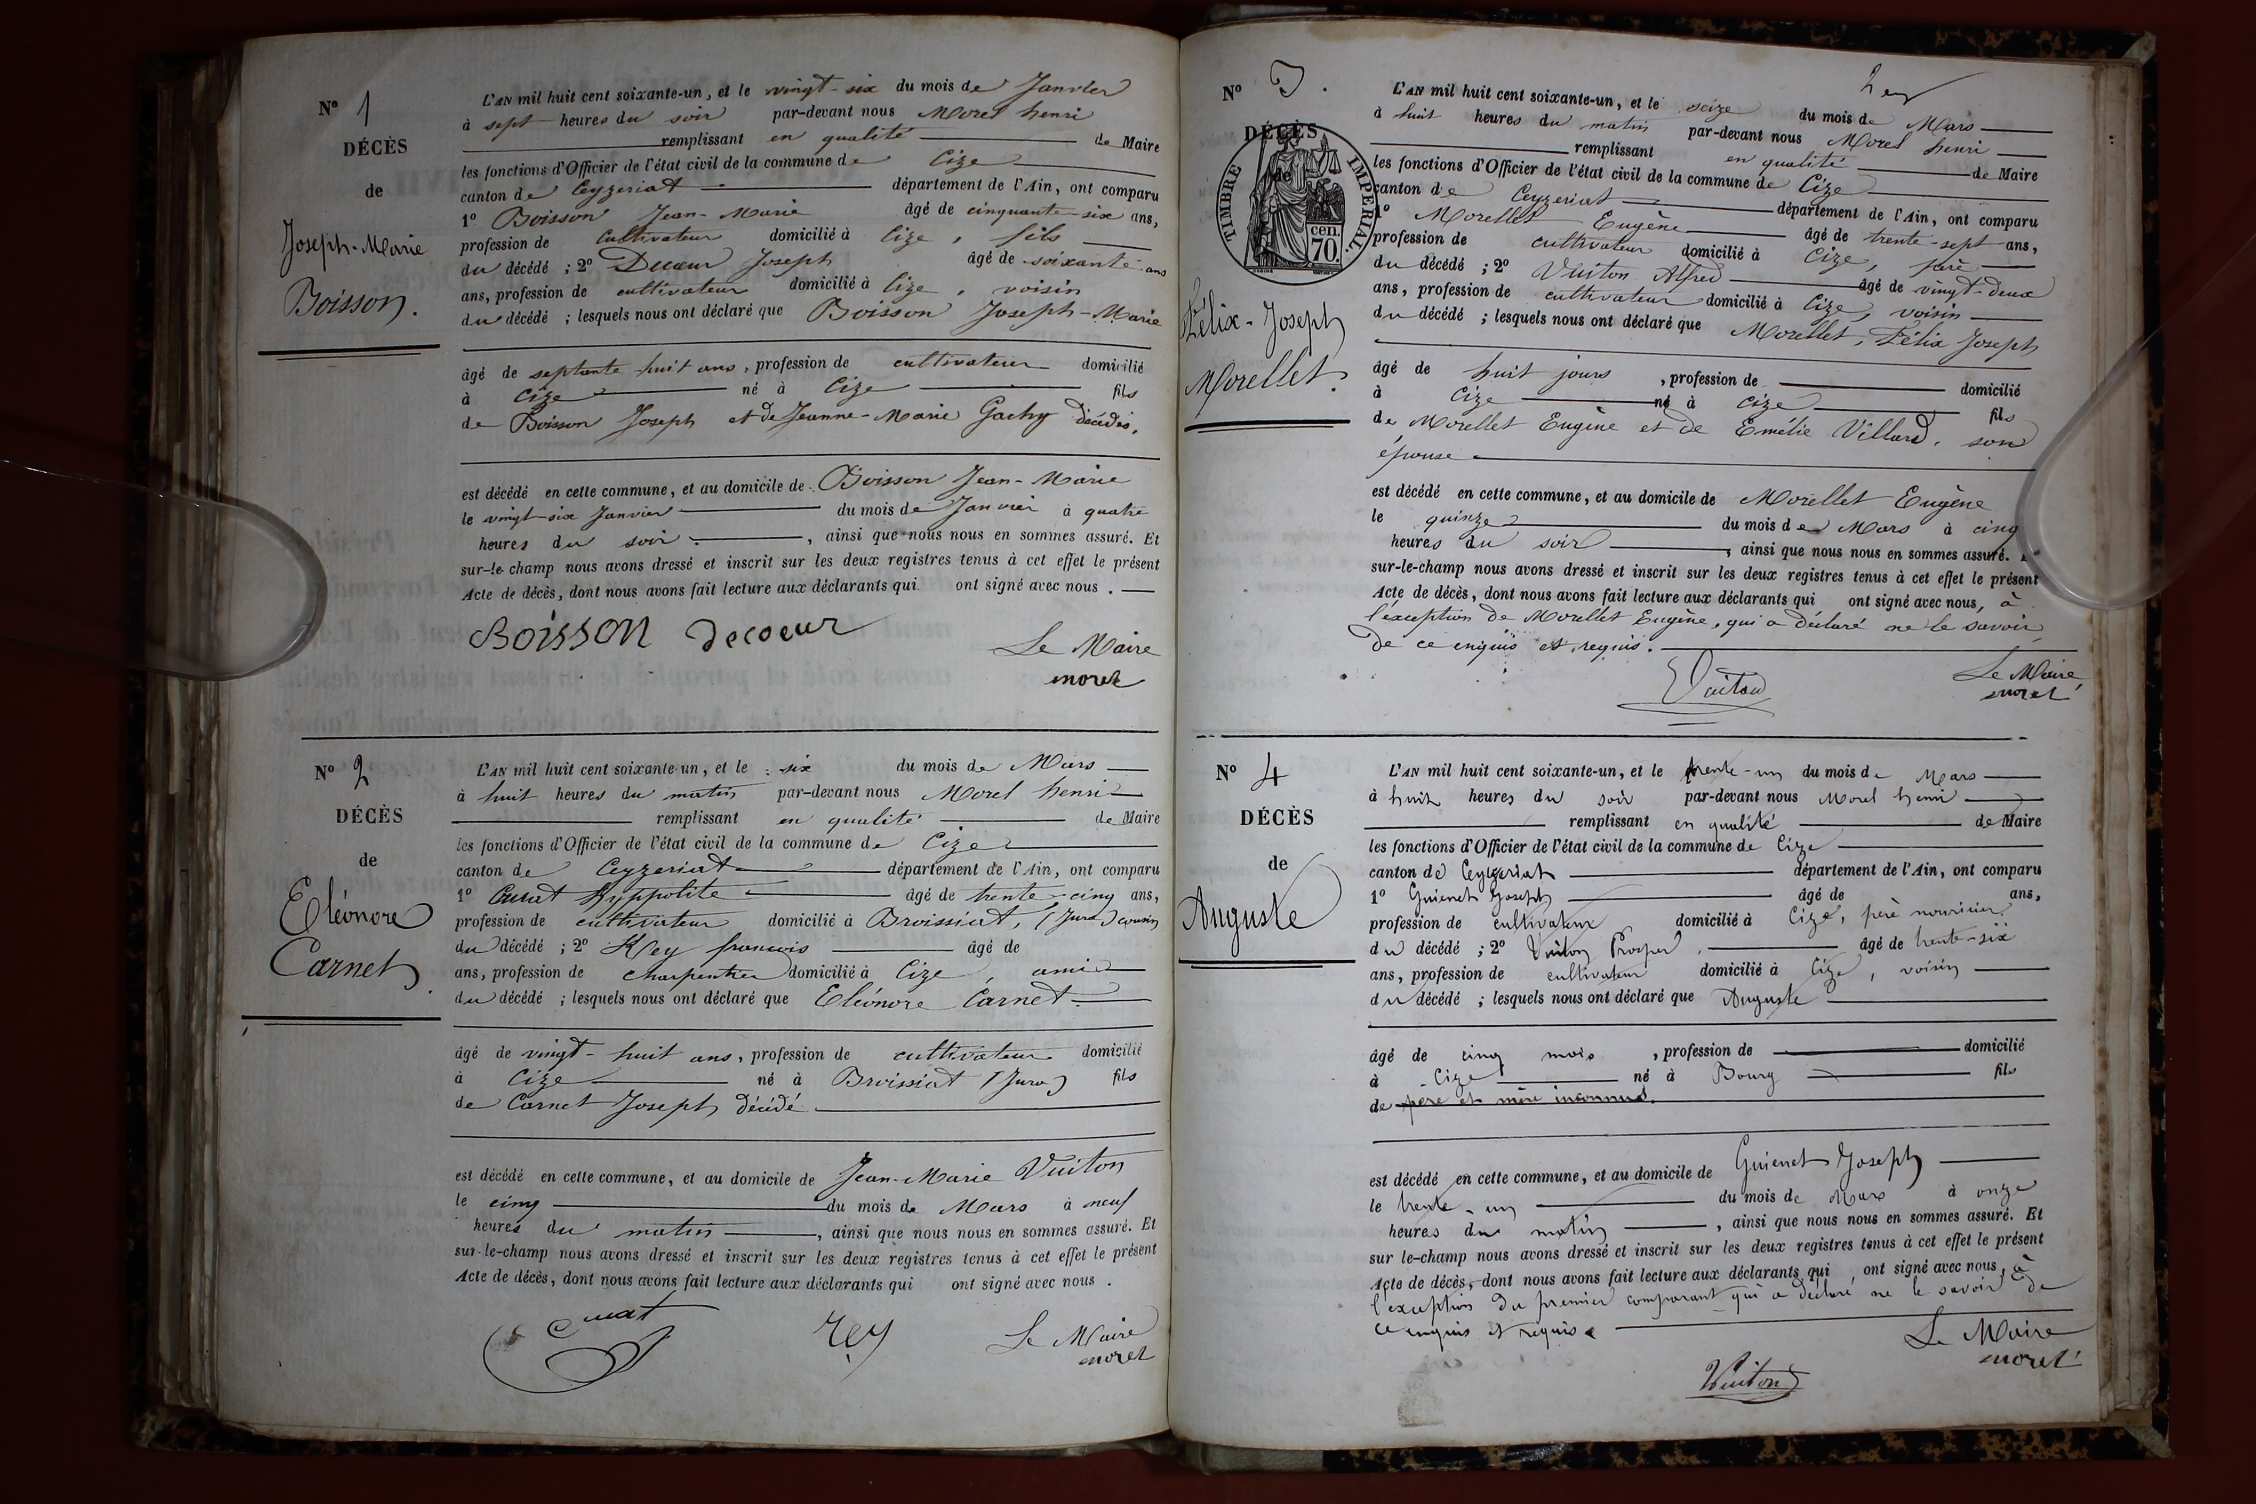 N° 1
DÉCÈS
de
Joseph-Marie
Boisson.
L'AN mil huit cent soixante-un, et le vingt-six du mois de Janvier
à sept heures du soir par-devant nous Morel henri
remplissant en qualité de Maire
les fonctions d'Officier de l'état civil de la commune de Cize
canton de Ceyzeriat département de l'Ain, ont comparu
1° Boisson Jean-Marie âgé de cinquante-six ans,
profession de cultivateur domicilié à Cize, fils
du décédé ; 2° Ducœur Joseph âgé de soixante ans
ans, profession de cultivateur domicilié à Cize, voisin
du décédé ; lesquels nous ont déclaré que Boisson Joseph-Marie
âgé de septante huit ans, profession de cultivateur domicilié
à Cize né à Cize fils
de Boisson Joseph et de Jeanne-Marie Gachy décédés.
est décédé en cette commune, et au domicile de Boisson Jean-Marie
le vingt-six Janvier du mois de Janvier à quatre
heures du soir, ainsi que nous nous en sommes assuré. Et
sur-le-champ nous avons dressé et inscrit sur les deux registres tenus à cet effet le présent
Acte de décès, dont nous avons fait lecture aux déclarants qui ont signé avec nous.
BOISSON decoeur
Le Maire
morel
N° 2
DÉCÈS
de
Eléonore
Carnet.
L'AN mil huit cent soixante-un, et le six du mois de Mars
à huit heures du matin par-devant nous Morel henri
remplissant en qualité de Maire
les fonctions d'Officier de l'état civil de la commune de Cize
canton de Ceyzeriat département de l'Ain, ont comparu
1° Curat Hyppolite âgé de trente-cinq ans,
profession de cultivateur domicilié à Broissiat, (Jura) cousin
du décédé ; 2° Rey françois âgé de
ans, profession de charpentier domicilié à Cize, ami
du décédé ; lesquels nous ont déclaré que Eléonore Carnet
âgé de vingt-huit ans, profession de cultivateur domicilié
à Cize né à Broissiat (Jura) fils
de Carnet Joseph décédé
est décédé en cette commune, et au domicile de Jean-Marie Vuiton
le cinq du mois de Mars à neuf
heures du matin, ainsi que nous nous en sommes assuré. Et
sur-le-champ nous avons dressé et inscrit sur les deux registres tenus à cet effet le présent
Acte de décès, dont nous avons fait lecture aux déclarants qui ont signé avec nous.
Curat rey
Le Maire
morel
N° 3.
DÉCÈS
de
TIMBRE IMPERIAL.
cen.
70.
Félix-Joseph
Morellet.
L'AN mil huit cent soixante-un, et le seize du mois de Mars
à huit heures du matin par-devant nous Morel henri
remplissant en qualité de Maire
les fonctions d'Officier de l'état civil de la commune de Cize
canton de Ceyzeriat département de l'Ain, ont comparu
1° Morellet Eugène âgé de trente-sept ans,
profession de cultivateur domicilié à Cize, père
du décédé ; 2° Vuiton Alfred âgé de vingt-deux
ans, profession de cultivateur domicilié à Cize, voisin
du décédé ; lesquels nous ont déclaré que Morellet, Félix Joseph
âgé de huit jours, profession de domicilié
à Cize né à Cize fils
de Morellet Eugène et de Emélie Villard, son
épouse
est décédé en cette commune, et au domicile de Morellet Eugène
le quinze du mois de Mars à cinq
heures du soir, ainsi que nous nous en sommes assuré.
sur-le-champ nous avons dressé et inscrit sur les deux registres tenus à cet effet le présent
Acte de décès, dont nous avons fait lecture aux déclarants qui ont signé avec nous, à
l'exception de Morellet Eugène, qui a déclaré ne le savoir
de ce enquis et requis.
Vuiton
Le Maire
morel
N° 4
DÉCÈS
de
Auguste
L'AN mil huit cent soixante-un, et le trente-un du mois de Mars
à huit heures du soir par-devant nous Morel henri
remplissant en qualité de Maire
les fonctions d'Officier de l'état civil de la commune de Cize
canton de Ceyzeriat département de l'Ain, ont comparu
1° Guienet Joseph âgé de ans,
profession de cultivateur domicilié à Cize, père nourricier
du décédé ; 2° Vuiton Prosper, âgé de trente-six
ans, profession de cultivateur domicilié à Cize, voisin
du décédé ; lesquels nous ont déclaré que Auguste
âgé de cinq mois, profession de domicilié
à Cize né à Bourg fils
de père et mère inconnus.
est décédé en cette commune, et au domicile de Guienet Joseph
le trente-un du mois de Mars à onze
heures du matin, ainsi que nous nous en sommes assuré. Et
sur le-champ nous avons dressé et inscrit sur les deux registres tenus à cet effet le présent
Acte de décès, dont nous avons fait lecture aux déclarants qui ont signé avec nous, à
l'exception du premier comparant qui a déclaré ne le savoir de
ce enquis et requis
Le Maire
morel
Vuiton